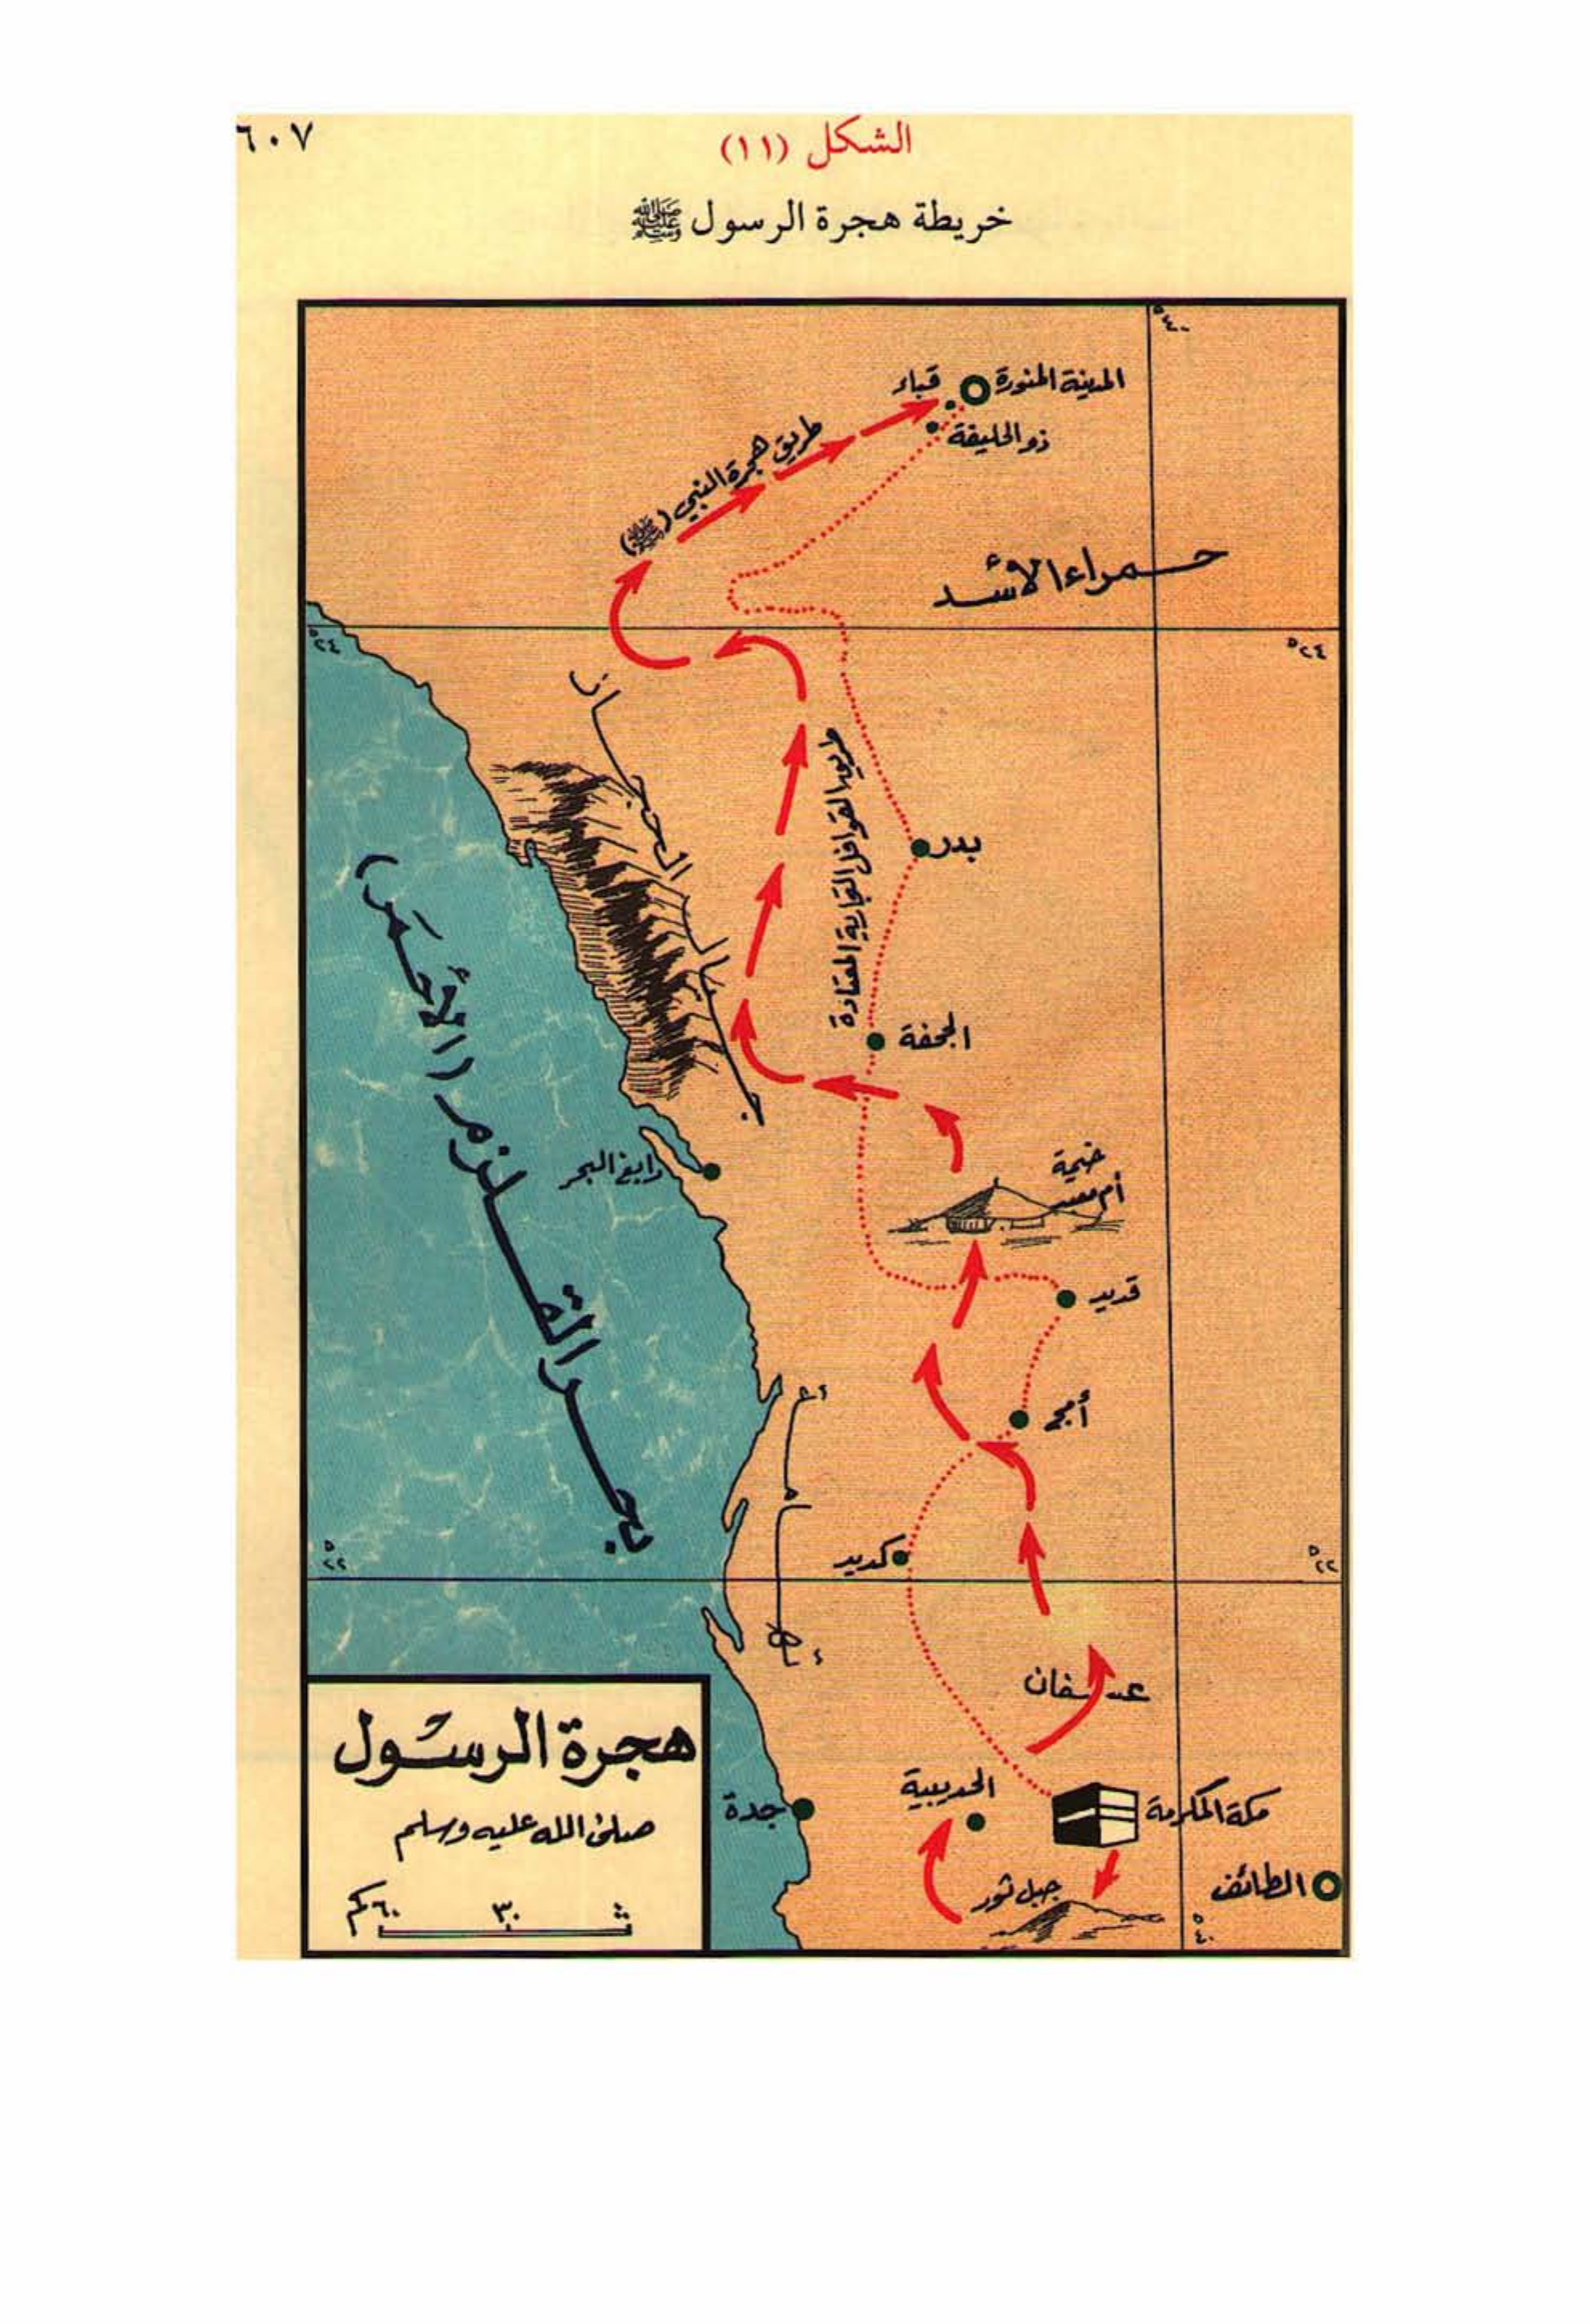 ٦٠٧
الشكل (١١)
خريطة هجرة الرسول ﷺ
٤٠°
المدينة المنورة
قباء
ذو الحليفة
طريق هجرة النبي (ﷺ)
حمراء الأسد
٢٤°
٢٤°
جبال الحجاز
طريق القوافل التجارية المعتادة
بدر
الجحفة
بحر القلزم (الأحمر)
رابغ البحر
خيمة
أم معبد
قديد
أمج
كديد
٢٢°
٢٢°
عسفان
الحديبية
مكة المكرمة
جدة
جبل ثور
الطائف
٤٠°
هجرة الرسول
صلى الله عليه وسلم
٣٠
٦٠ كم